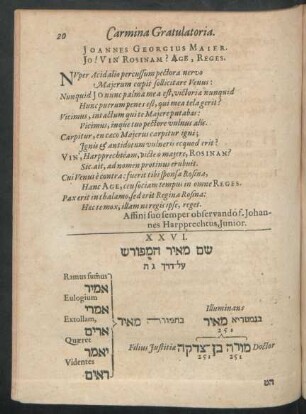 20 Carmina Gratulatoria.
JOANNES GEORGIUS MAIER.
JO! VIN ROSINAM? AGE, REGES.
NUper Acidalio percussum pectora nervo
Majerum cupit sollicitare Venus:
Nunquid JO nunc palma mea est, victoria nunquid
Hunc puerum penes est, qui mea tela gerit?
Vicimus, intactum qui te Majere putabas:
Vicimus, inquis tuo pectore volnus alis.
Carpitur, en caco Majerus carpitur igni;
Ignis & antidotum volneris ecquod erit?
VIN, Harpprechtiam, victe a majere, ROSINAM?
Sic ait, ad nameu protinus erubuit.
Cui Venus è contra: fuerat tibi sponsa Rosina,
Hanc AGE, ceu sociam tempus in omne REGES.
Pax erit in thalamo, sed erit Regina Rosina:
Hoc te mox, illam us regis ipse, reget.
Affini suo semper observando f. Johan-
nes Harpprechtus, Junior.
XXVI.
שם מאיר המפורש
על דרך גת
Rimus fumus
אמיר
Eulogium
אמרי
Extollam,
ארים
Quæret
יאמר
Videntes
ראים
בתמורה מאיר
Illuminans
בגמטריא מאיר
251
Filius Justitiæ מורה בן צדקה Doctor
251 251
הט